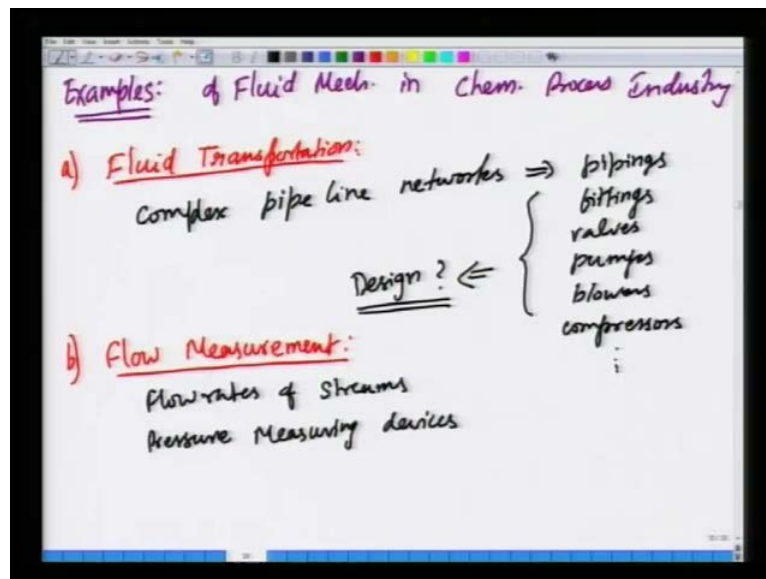 Examples: of Fluid Mech. in Chem. Process Industry
a) Fluid Transportation:
Complex pipe line networks ⇒ pipings
fittings
valves
pumps
blowers
compressors
⋮
Design? ⇐
b) Flow Measurement:
Flowrates of Streams
Pressure Measuring devices